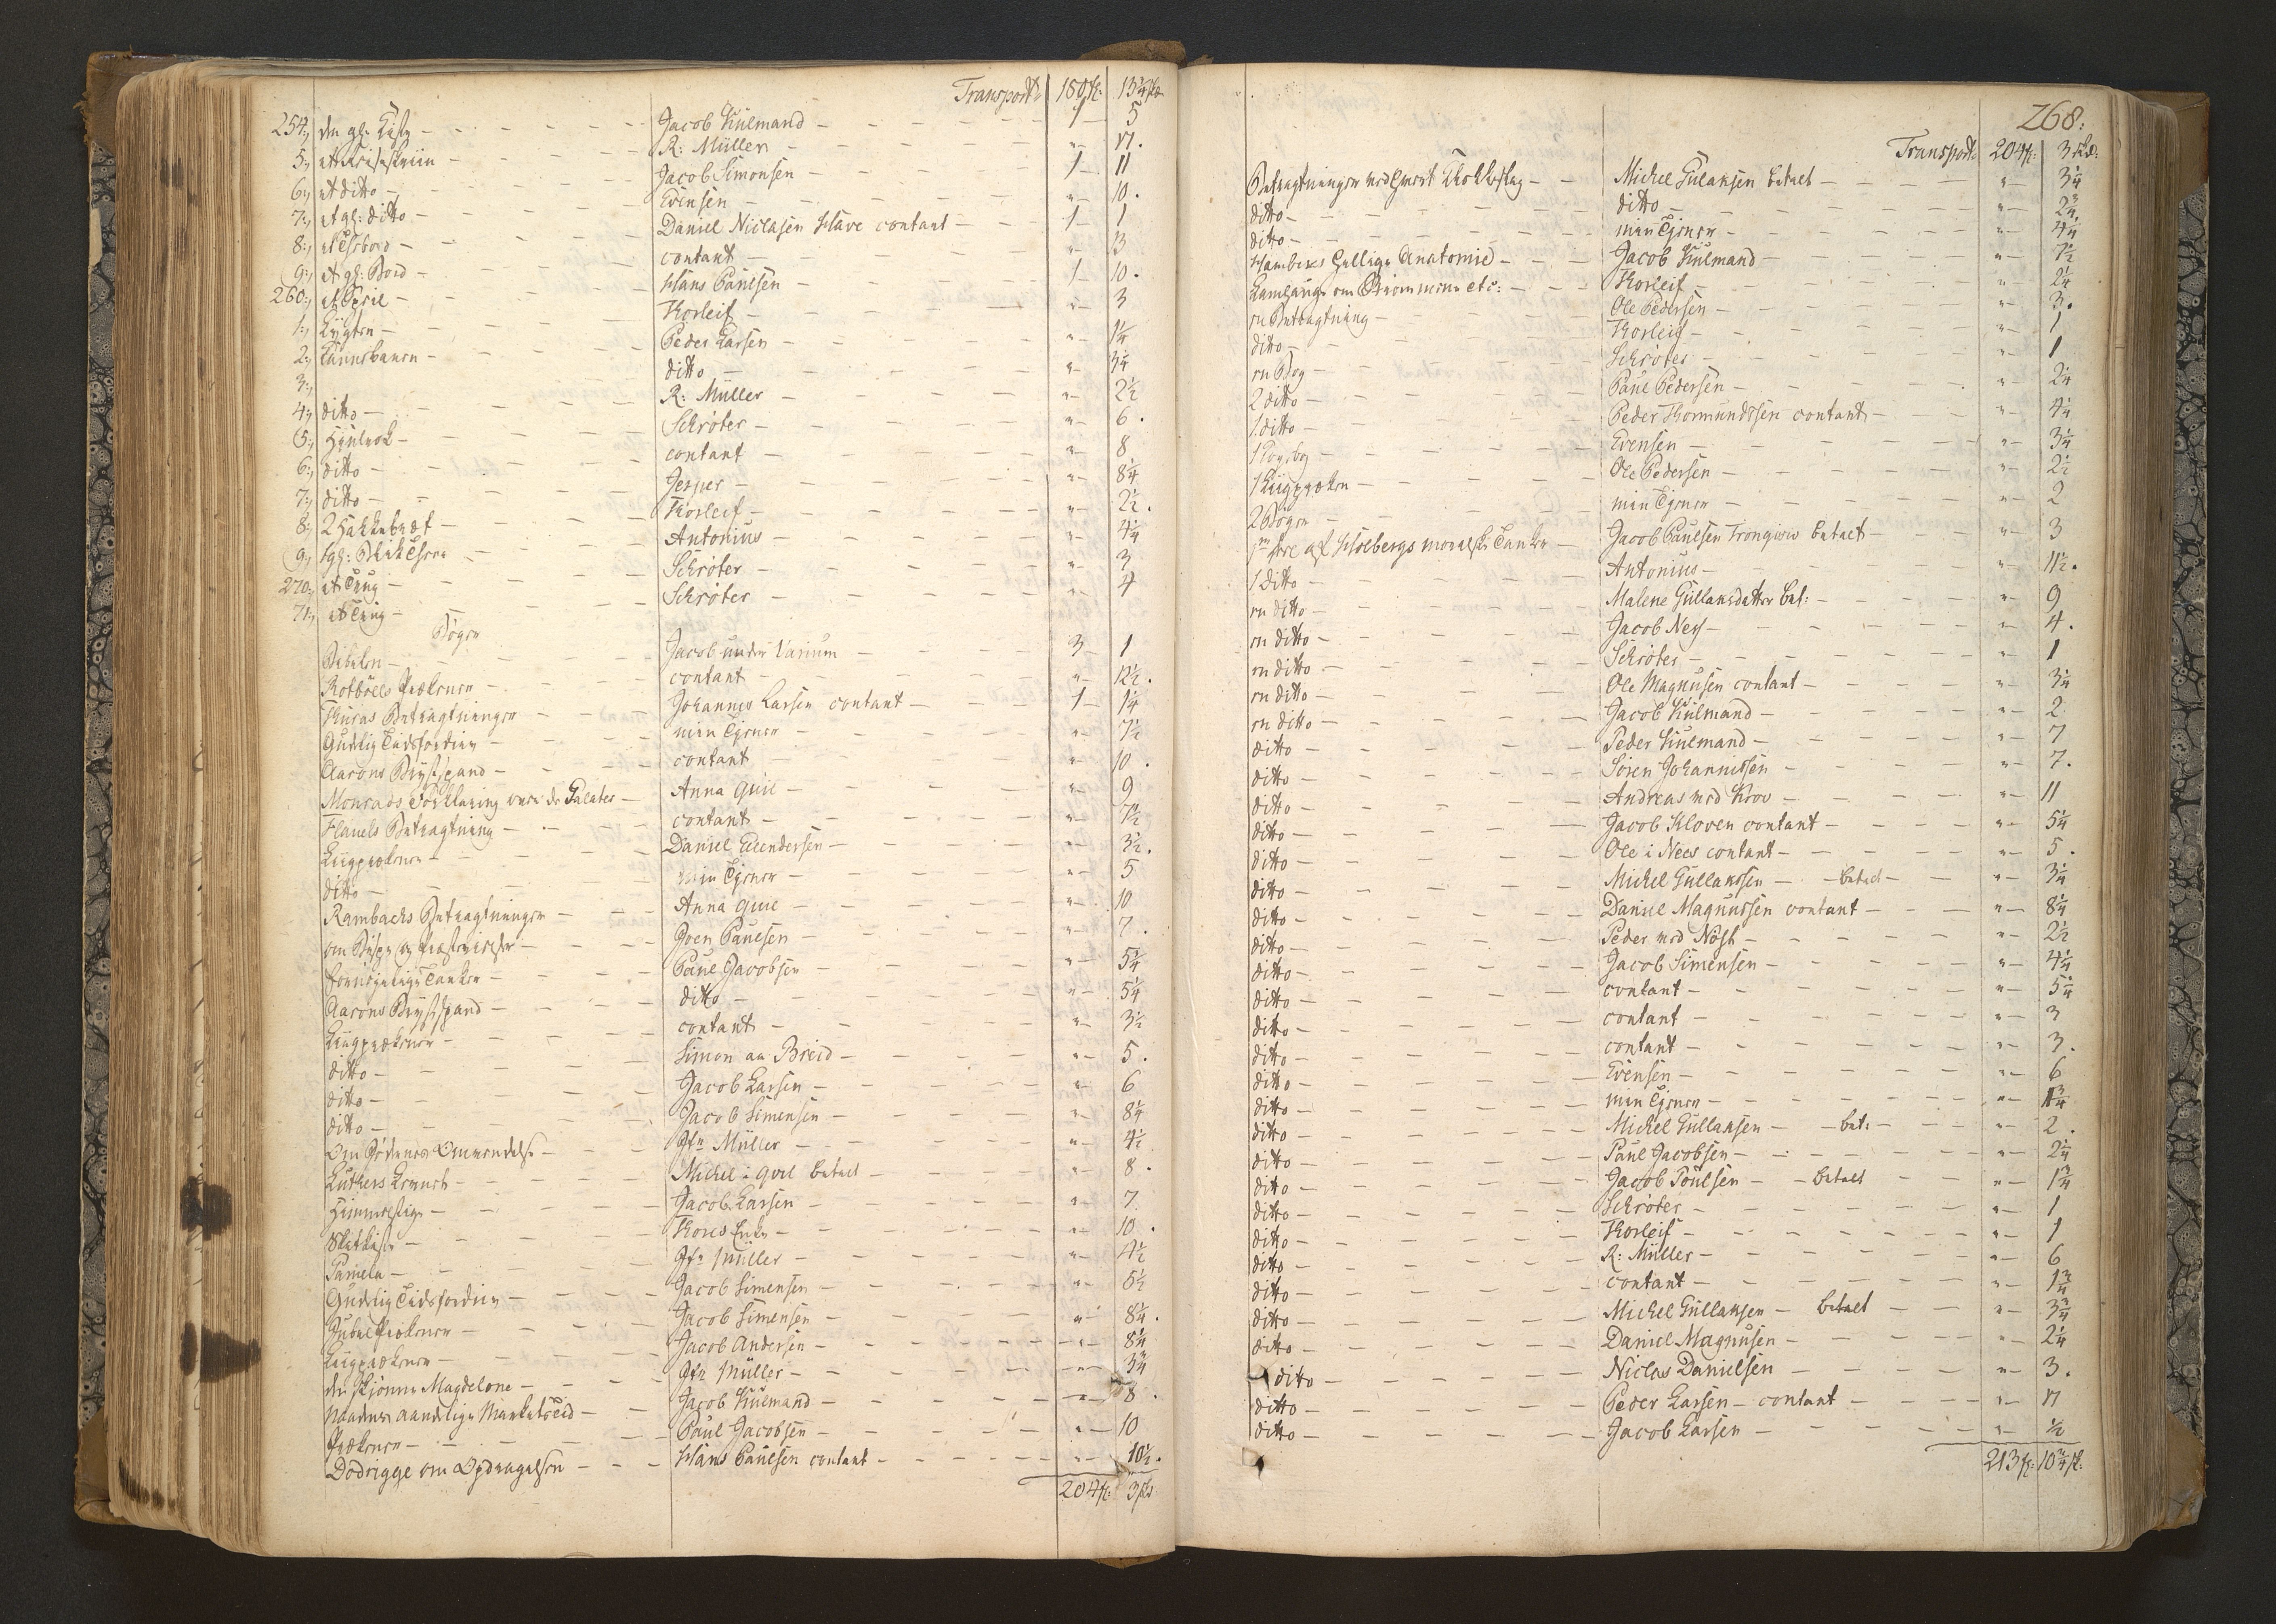 Transport 180 fl: 13¼ skr
254:, den gl: Kiste - Jacob Kulmand - 1 - 5
5:, et Reiseskriin - R: Müller - " - 17.
6:, et ditto - Jacob Simonsen - 1 - 11
7:, et gl: ditto - Evensen - " - 10.
8:, et Thebord - Daniel Niclasen Have contant - 1 - 1
9:, et gl: Bord - contant - " - 13
260:, et - Hans Paulsen - 1 - 10.
1:, Lygten - Thorleif - " - 3
2:, - Peder Larsen - " - 1¼
3:, ditto - " - 3¼
4:, ditto - R: Müller - " - 2½
5:, - Schrøter - " - 6.
6:, ditto - contant - " - 8
7:, ditto - Jesper - " - 8¼
8:, 2 Hakkebræt - Thorleif - " - 2½.
9:, 1 gl: - Antonius - " - 4¼
270:, et Toug - Schrøter - " - 3
71:, et Toug - Schrøter - " - 4
Bøger
Bibelen - Jacob under Varium - 3 - 1
Rotbölls Prækener - contant - " - 12½.
Thuras Betragtninger - Johannes Larsen contant - 1 - 1¼
Gudelig Tidsfordriv - min Tjener - " - 7½
Aarons Brystspand - contant - " - 10.
Monrads Forklaring over de Galater - Anna Guil - " - 9
Flavels Betragtning - contant - " - 7½
Liigprækener - Daniel - " - 3½.
ditto - min Tjener - " - 5
Rambachs Betragtninger - Anna Guil - " - 10
om Bispe og Præstevielse - Joen Paulsen - " - 7.
fornøyelige Tanker - Paul Jacobsen - " - 5¼
Aarons Brystspand - ditto - " - 5¼
Liigprækener - contant - " - 3½
ditto - Simon aa Breid - " - 5.
ditto - Jacob Larsen - " - 6
ditto - Jacob Simensen - " - 8¼
Om Jødernes Omvendelse - Jfr Müller - " - 4½
Luthers Levnet - Michel i betalt - " - 8.
Himmelstige - Jacob Larsen - " - 7
Skatkiste - Thores Enke - " - 10.
Pamela - Jfr Müller - " - 4½
Gudelig Tidsfordriv - Jacob Simensen - " - 5½
Jubel Prækener - Jacob Simensen - " - 8¼.
Liigprækener - Jacob Andersen - " - 8¼
den skjønne Magdelone - Jfr Müller - " - 3¾
Naadens aandelige Markets Tid - Jacob Kulmand - " - 8.
Prækener - Paul Jacobsen - " - 10
Dodrigge om Opdragelsen - Hans Paulsen contant - " - 10½.
204 fl: 3 skr
268:
Transport 204 fl: 3 skr:
Betragtninger med - Michel Gulaksen betalt - " - 3¼
ditto - ditto - " - 2¾.
ditto - min Tjener - " - 4¼
Anatomie - Jacob Kulmand - " - 7½
om etc: - Thorleif - " - 2¼
en Betragtning - Ole Pedersen - " - 3.
ditto - Thorleif - " - 1
en Bog - Schrøter - " - 1
2 ditto - Paul Pedersen - " - 2¼
1 ditto - Peder Thormundssen contant - " - 4¼
1 - Evensen - " - 3¼
1 Liigpræken - Ole Pedersen - " - 2½
2 Bøger - min Tjener - " - 2
af Holbergs moralske Tanker - Jacob Paulsen betalt - " - 3
1 ditto - Antonius - " - 11½.
en ditto - Malene Gullaksdatter bet: - " - 9
en ditto - Jacob - " - 4.
en ditto - Schrøter - " - 1
en ditto - Ole Magnusen contant - " - 3¼
en ditto - Jacob Kulmand - " - 2
ditto - Peder Kulmand - " - 7
ditto - Søren Johannissen - " - 7.
ditto - Andreas ved - " - 11
ditto - Jacob Kloven contant - " - 5¼
ditto - Ole i Nees contant - " - 5.
ditto - Michel Gullakssen - betalt - " - 3¼
ditto - Daniel Magnussen contant - " - 8¼
ditto - Peder ved Nøst - " - 2½
ditto - Jacob Simensen - " - 4¼
ditto - contant - " - 5¼
ditto - contant - " - 3
ditto - contant - " - 3.
ditto - Evensen - " - 6
ditto - min Tjener - "
ditto - Michel Gullaksen - bet: - " - 2.
ditto - Paul Jacobsen - " - 2¼
ditto - Jacob Poulsen - betalt - " - 1¾
ditto - Schrøter - " - 1
ditto - Thorleif - " - 1
ditto - R: Müller - " - 6
ditto - contant - " - 1¾
ditto - Michel Gullaksen - betalt - " - 3¾
ditto - Daniel Magnusen - " - 2¼
ditto - Niclas Danielsen - " - 3.
ditto - Peder Larsen - contant - " - 17
ditto - Jacob Larsen - " - ½
213 fl: 10¾ sk: